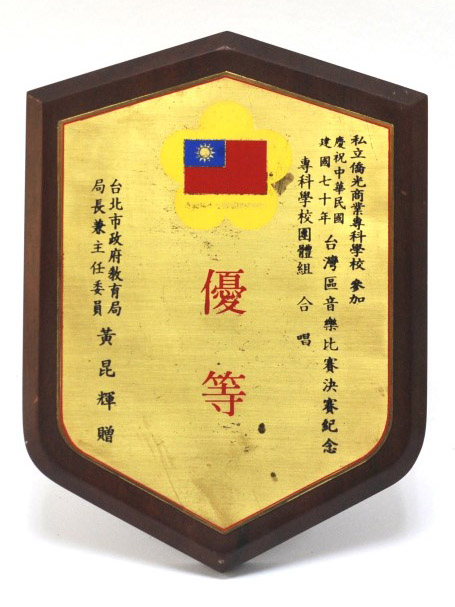 私立僑光商業專科學校 參加
慶祝中華民國
建國七十年
台灣區音樂比賽決賽紀念
專科學校團體組 合唱
優等
台北市政府教育局
局長兼主任委員 黃昆輝 贈